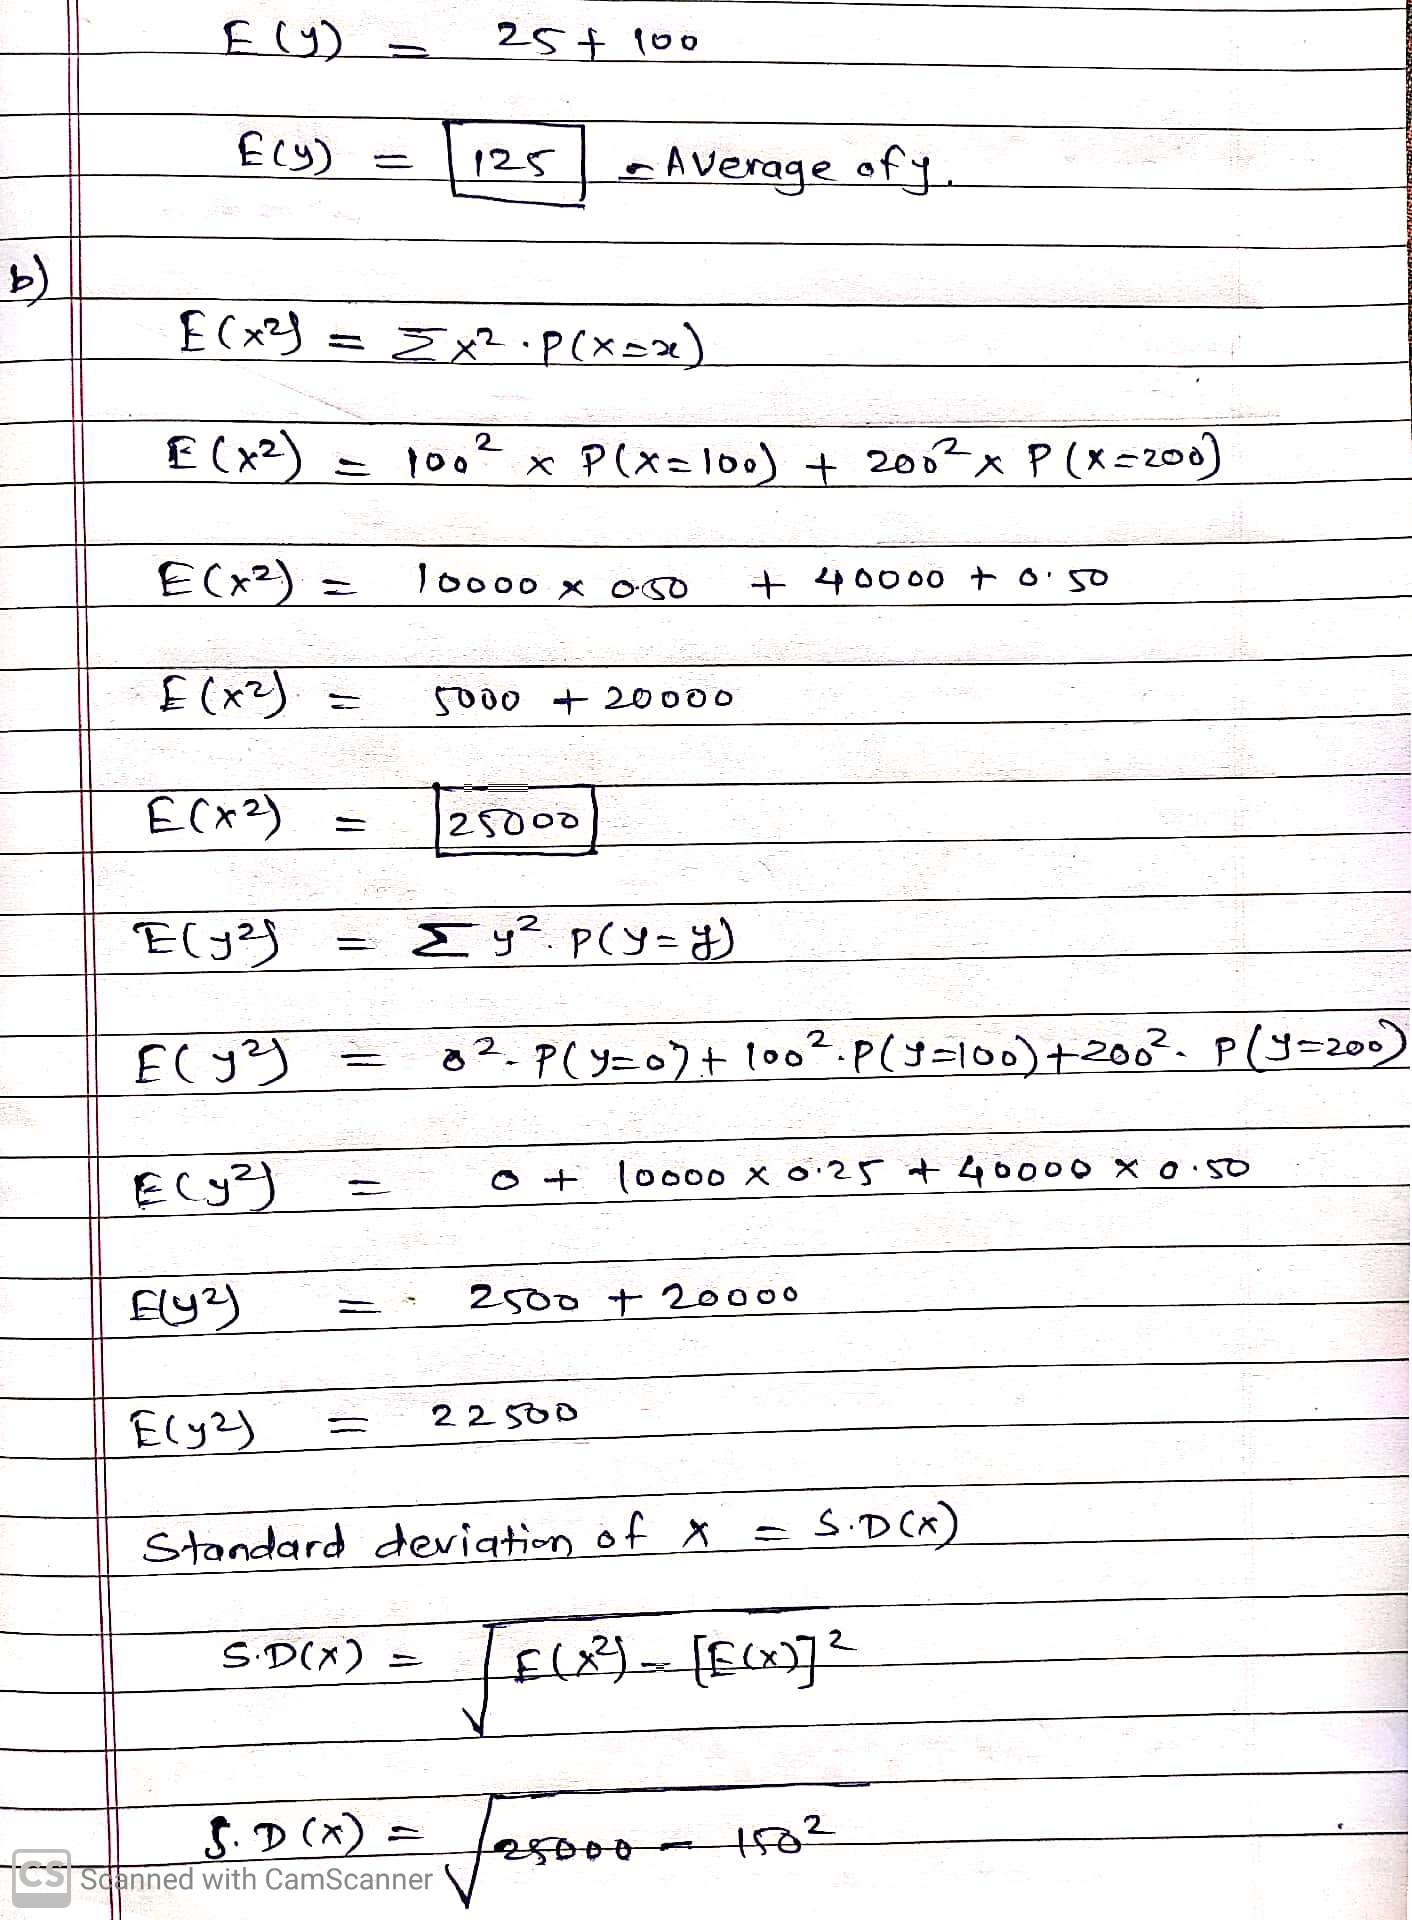 E(y) = 25 + 100
E(y) = 125 - Average of y.
b)
E(x²) = Σx² · P(X=x)
E(x²) = 100² × P(X=100) + 200² × P(X=200)
E(x²) = 10000 × 0.50 + 40000 + 0.50
E(x²) = 5000 + 20000
E(x²) = 25000
E(y²) = Σ y². P(Y=y)
E(y²) = 0². P(y=0) + 100². P(y=100) + 200². P(y=200)
E(y²) = 0 + 10000 × 0.25 + 40000 × 0.50
E(y²) = 2500 + 20000
E(y²) = 22500
Standard deviation of x = S.D(x)
S.D(x) = √E(x²) - [E(x)]²
S.D(x) = √25000 - 150²
CS Scanned with CamScanner